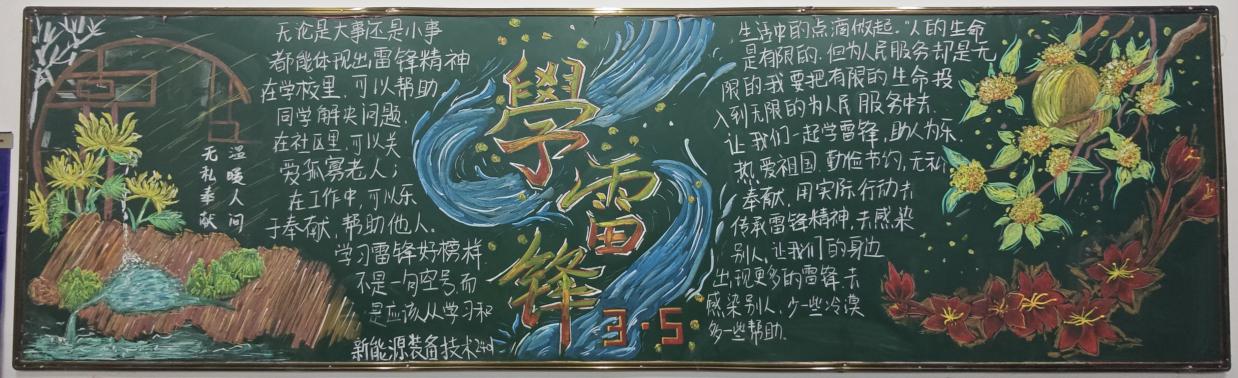 无论是大事还是小事
都能体现出雷锋精神
在学校里,可以帮助
同学解决问题.
在社区里,可以关
爱孤寡老人;
在工作中,可以乐
于奉献,帮助他人.
学习雷锋好榜样
不是一句空号,而
是应该从学习和
新能源装备技术
温暖人间
无私奉献
學雷鋒
3·5
生活中的点滴做起."人的生命
是有限的.但为人民服务却是无
限的.我要把有限的生命投
入到无限的为人民服务中去.
让我们一起学雷锋,助人为乐.
热爱祖国,勤俭节约,无私
奉献.用实际行动去
传承雷锋精神,去感染
别人,让我们的身边
出现更多的雷锋.去
感染别人,少一些冷漠
多一些帮助.